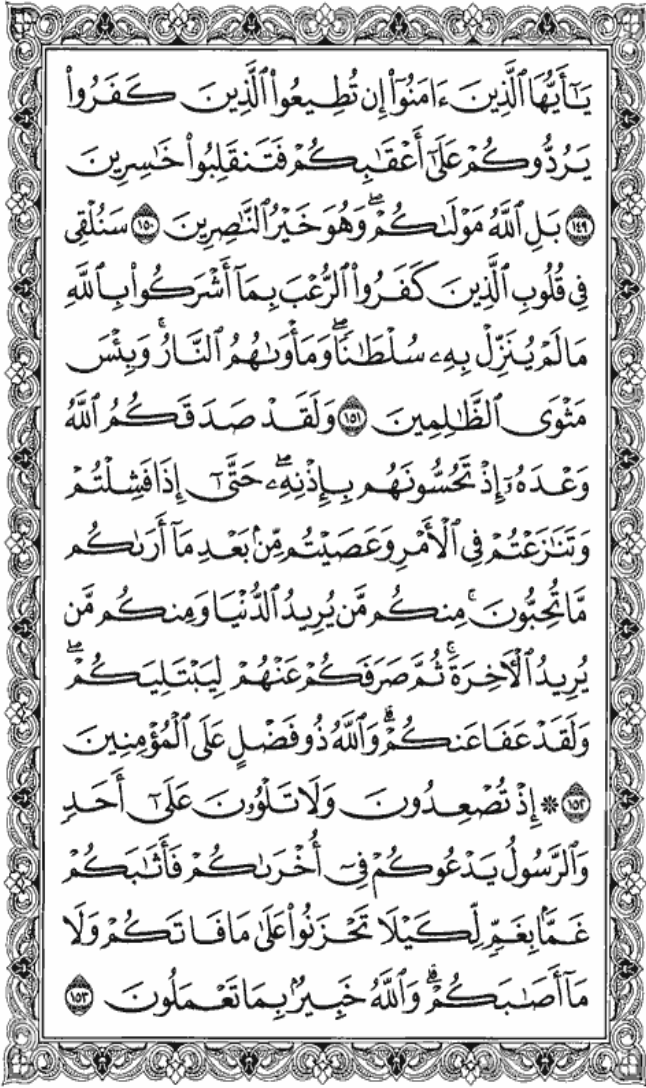 يَـٰٓأَيُّهَا ٱلَّذِينَ ءَامَنُوٓا۟ إِن تُطِيعُوا۟ ٱلَّذِينَ كَفَرُوا۟
يَرُدُّوكُمْ عَلَىٰٓ أَعْقَـٰبِكُمْ فَتَنقَلِبُوا۟ خَـٰسِرِينَ
١٤٩ بَلِ ٱللَّهُ مَوْلَىٰكُمْ ۖ وَهُوَ خَيْرُ ٱلنَّـٰصِرِينَ ١٥٠ سَنُلْقِى
فِى قُلُوبِ ٱلَّذِينَ كَفَرُوا۟ ٱلرُّعْبَ بِمَآ أَشْرَكُوا۟ بِٱللَّهِ
مَا لَمْ يُنَزِّلْ بِهِۦ سُلْطَـٰنًا ۖ وَمَأْوَىٰهُمُ ٱلنَّارُ ۚ وَبِئْسَ
مَثْوَى ٱلظَّـٰلِمِينَ ١٥١ وَلَقَدْ صَدَقَكُمُ ٱللَّهُ
وَعْدَهُۥٓ إِذْ تَحُسُّونَهُم بِإِذْنِهِۦ ۖ حَتَّىٰٓ إِذَا فَشِلْتُمْ
وَتَنَـٰزَعْتُمْ فِى ٱلْأَمْرِ وَعَصَيْتُم مِّنۢ بَعْدِ مَآ أَرَىٰكُم
مَّا تُحِبُّونَ ۚ مِنكُم مَّن يُرِيدُ ٱلدُّنْيَا وَمِنكُم مَّن
يُرِيدُ ٱلْـَٔاخِرَةَ ۚ ثُمَّ صَرَفَكُمْ عَنْهُمْ لِيَبْتَلِيَكُمْ ۖ
وَلَقَدْ عَفَا عَنكُمْ ۗ وَٱللَّهُ ذُو فَضْلٍ عَلَى ٱلْمُؤْمِنِينَ
١٥٢ * إِذْ تُصْعِدُونَ وَلَا تَلْوُۥنَ عَلَىٰٓ أَحَدٍ
وَٱلرَّسُولُ يَدْعُوكُمْ فِىٓ أُخْرَىٰكُمْ فَأَثَـٰبَكُمْ
غَمًّۢا بِغَمٍّ لِّكَيْلَا تَحْزَنُوا۟ عَلَىٰ مَا فَاتَكُمْ وَلَا
مَآ أَصَـٰبَكُمْ ۗ وَٱللَّهُ خَبِيرٌۢ بِمَا تَعْمَلُونَ ١٥٣